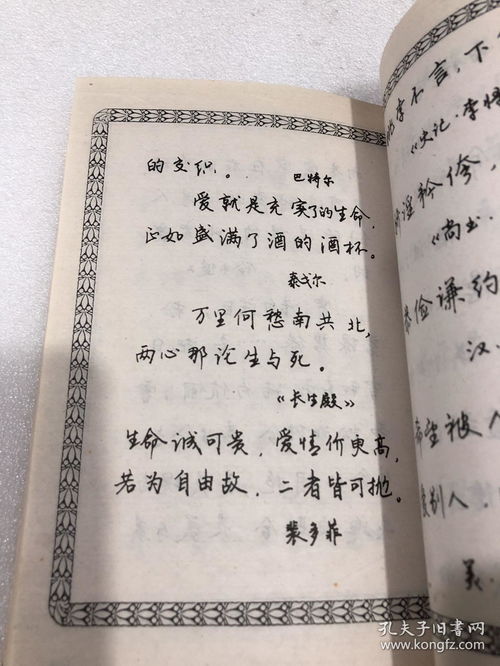 的交织。
巴特尔
爱就是充实了的生命,
正如盛满了酒的酒杯。
泰戈尔
万里何愁南共北,
两心那论生与死。
《长生殿》
生命诚可贵，爱情价更高，
若为自由故，二者皆可抛。
裴多菲
不言，下
《史记·李
矜侈，
《尚书·
俭谦约
汉·
希望被人
别人，
美·
孔夫子旧书网
www.kongfz.com